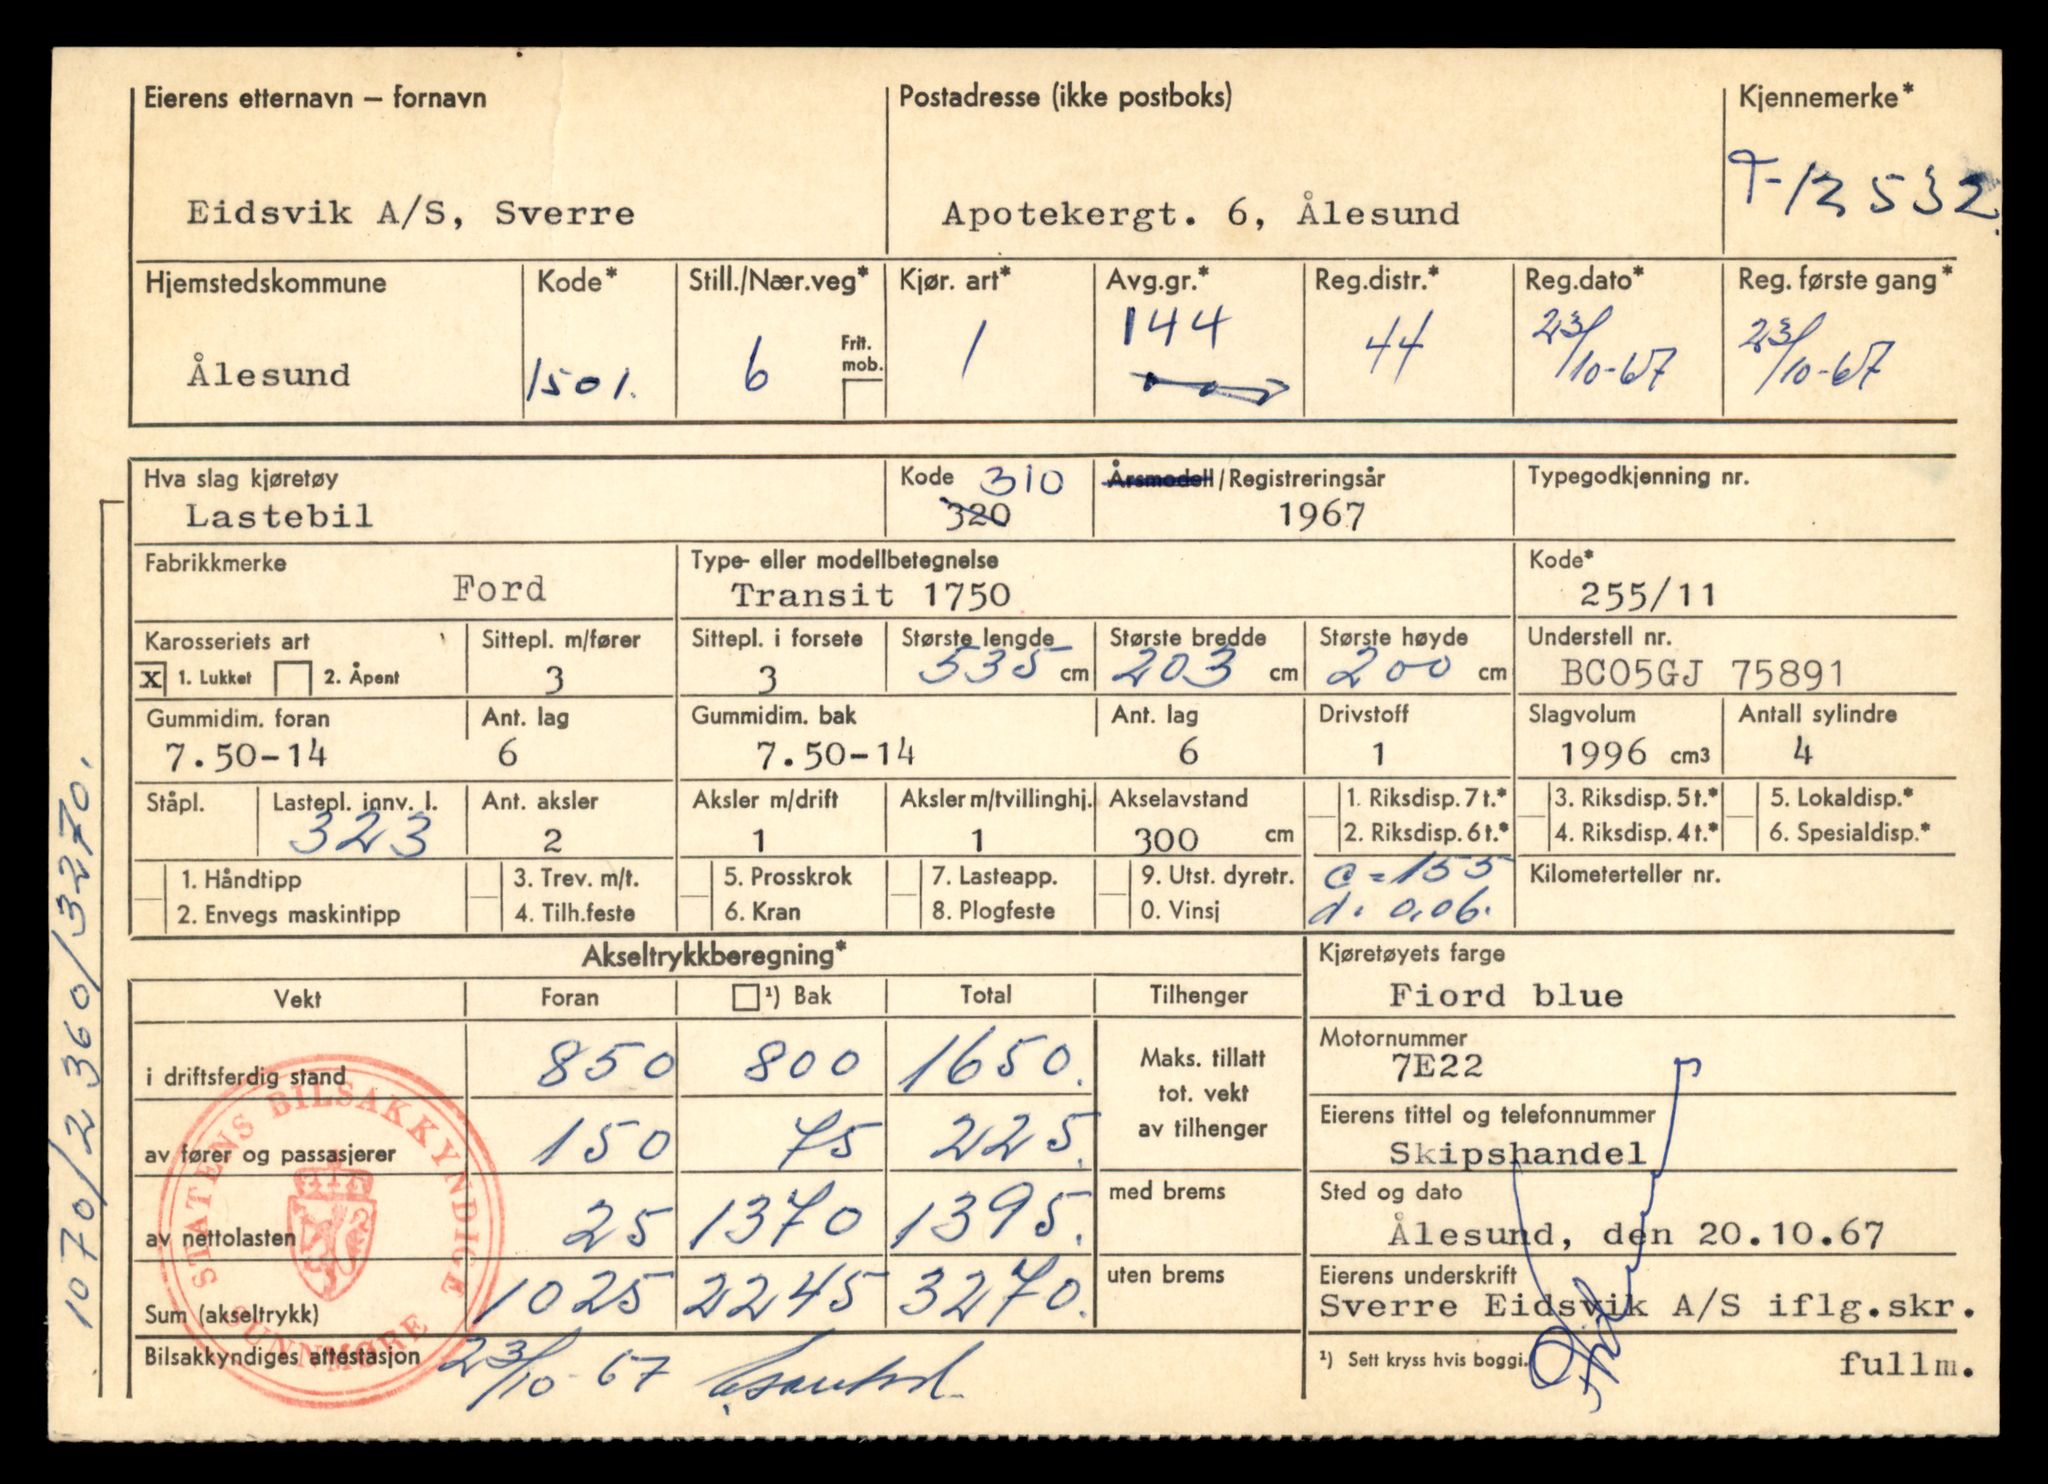 Eierens etternavn – fornavn
Eidsvik A/S, Sverre
Postadresse (ikke postboks)
Apotekergt. 6, Ålesund
Kjennemerke*
T-12532
Hjemstedskommune
Ålesund
Kode*
1501.
Still./Nær.veg*
6
Frit. mob.
Kjør. art*
1
Avg.gr.*
144
Reg.distr.*
44
Reg.dato*
23/10-67
Reg. første gang*
23/10-67
Hva slag kjøretøy
Lastebil
Kode 310
320
Årsmodell/Registreringsår
1967
Typegodkjenning nr.
Fabrikkmerke
Ford
Type- eller modellbetegnelse
Transit 1750
Kode*
255/11
Karosseriets art
X 1. Lukket 2. Åpent
Sittepl. m/fører
3
Sittepl. i forsete
3
Største lengde
535 cm
Største bredde
203 cm
Største høyde
200 cm
Understell nr.
BC05GJ 75891
Gummidim. foran
7.50-14
Ant. lag
6
Gummidim. bak
7.50-14
Ant. lag
6
Drivstoff
1
Slagvolum
1996 cm3
Antall sylindre
4
Ståpl.
Lastepl. innv. l.
323
Ant. aksler
2
Aksler m/drift
1
Aksler m/tvillinghj.
1
Akselavstand
300 cm
1. Riksdisp. 7 t.*
2. Riksdisp. 6 t.*
3. Riksdisp. 5 t.*
4. Riksdisp. 4 t.*
5. Lokaldisp.*
6. Spesialdisp.*
1. Håndtipp
2. Envegs maskintipp
3. Trev. m/t.
4. Tilh.feste
5. Prosskrok
6. Kran
7. Lasteapp.
8. Plogfeste
9. Utst. dyretr.
0. Vinsj
c = 155
d. 0,06.
Kilometerteller nr.
Akseltrykkberegning*
Vekt Foran ¹) Bak Total Tilhenger
i driftsferdig stand 850 800 1650.
av fører og passasjerer 150 75 225.
av nettolasten 25 1370 1395.
Sum (akseltrykk) 1025 2245 3270.
Maks. tillatt
tot. vekt
av tilhenger
med brems
uten brems
Bilsakkyndiges attestasjon 23/10-67
STATENS BILSAKKYNDIGE
SUNNMØRE
Kjøretøyets farge
Fiord blue
Motornummer
7E22
Eierens tittel og telefonnummer
Skipshandel
Sted og dato
Ålesund, den 20.10.67
Eierens underskrift
Sverre Eidsvik A/S iflg.skr.
¹) Sett kryss hvis boggi.
fullm.
1070/2360/3270.